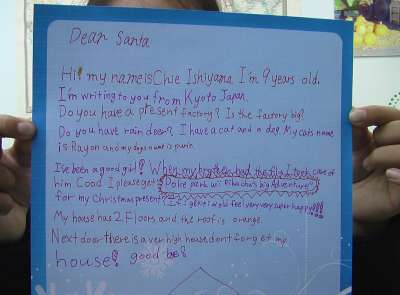 Dear Santa
Hi! my name is Chie Ishiyama I'm 9 years old.
I'm writing to you from Kyoto Japan.
Do you have a present factory? Is the factory big?
Do you have rain deer? I have a cat and a dog. My cats name
is Rayon and my dogs name is
I've been a good girl! When my brother had the flu I took care of
him. Cood I please get "Poke park wii Pikachu's big Adventure"
for my christmas present? If I get it I wold feel very very super happy!!!
My house has 2 Floors and the roof is orange.
Next door there is a very high house dont forget my
house! good bye!